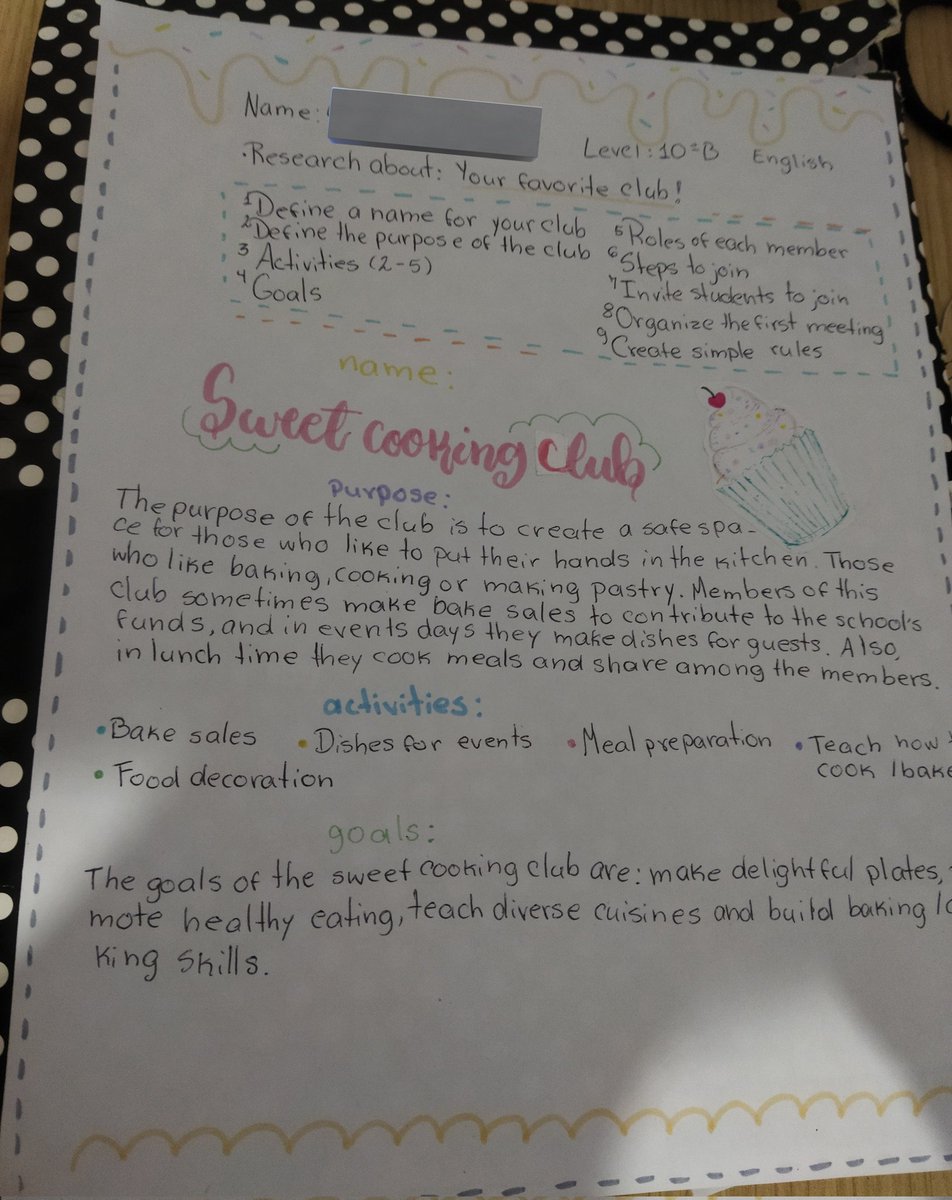 Name:
Level: 10°B English
·Research about: Your favorite club!
1 Define a name for your club
2 Define the purpose of the club
3 Activities (2-5)
4 Goals
5 Roles of each member
6 Steps to join
7 Invite students to join
8 Organize the first meeting
9 Create simple rules
name:
Sweet cooking club
purpose:
The purpose of the club is to create a safe spa-
ce for those who like to put their hands in the kitchen. Those
who like baking, cooking or making pastry. Members of this
club sometimes make bake sales to contribute to the school's
funds, and in events days they make dishes for guests. Also,
in lunch time they cook meals and share among the members.
activities:
• Bake sales • Dishes for events • Meal preparation • Teach how
cook / bake
• Food decoration
goals:
The goals of the sweet cooking club are: make delightful plates,
mote healthy eating, teach diverse cuisines and build baking /
king skills.